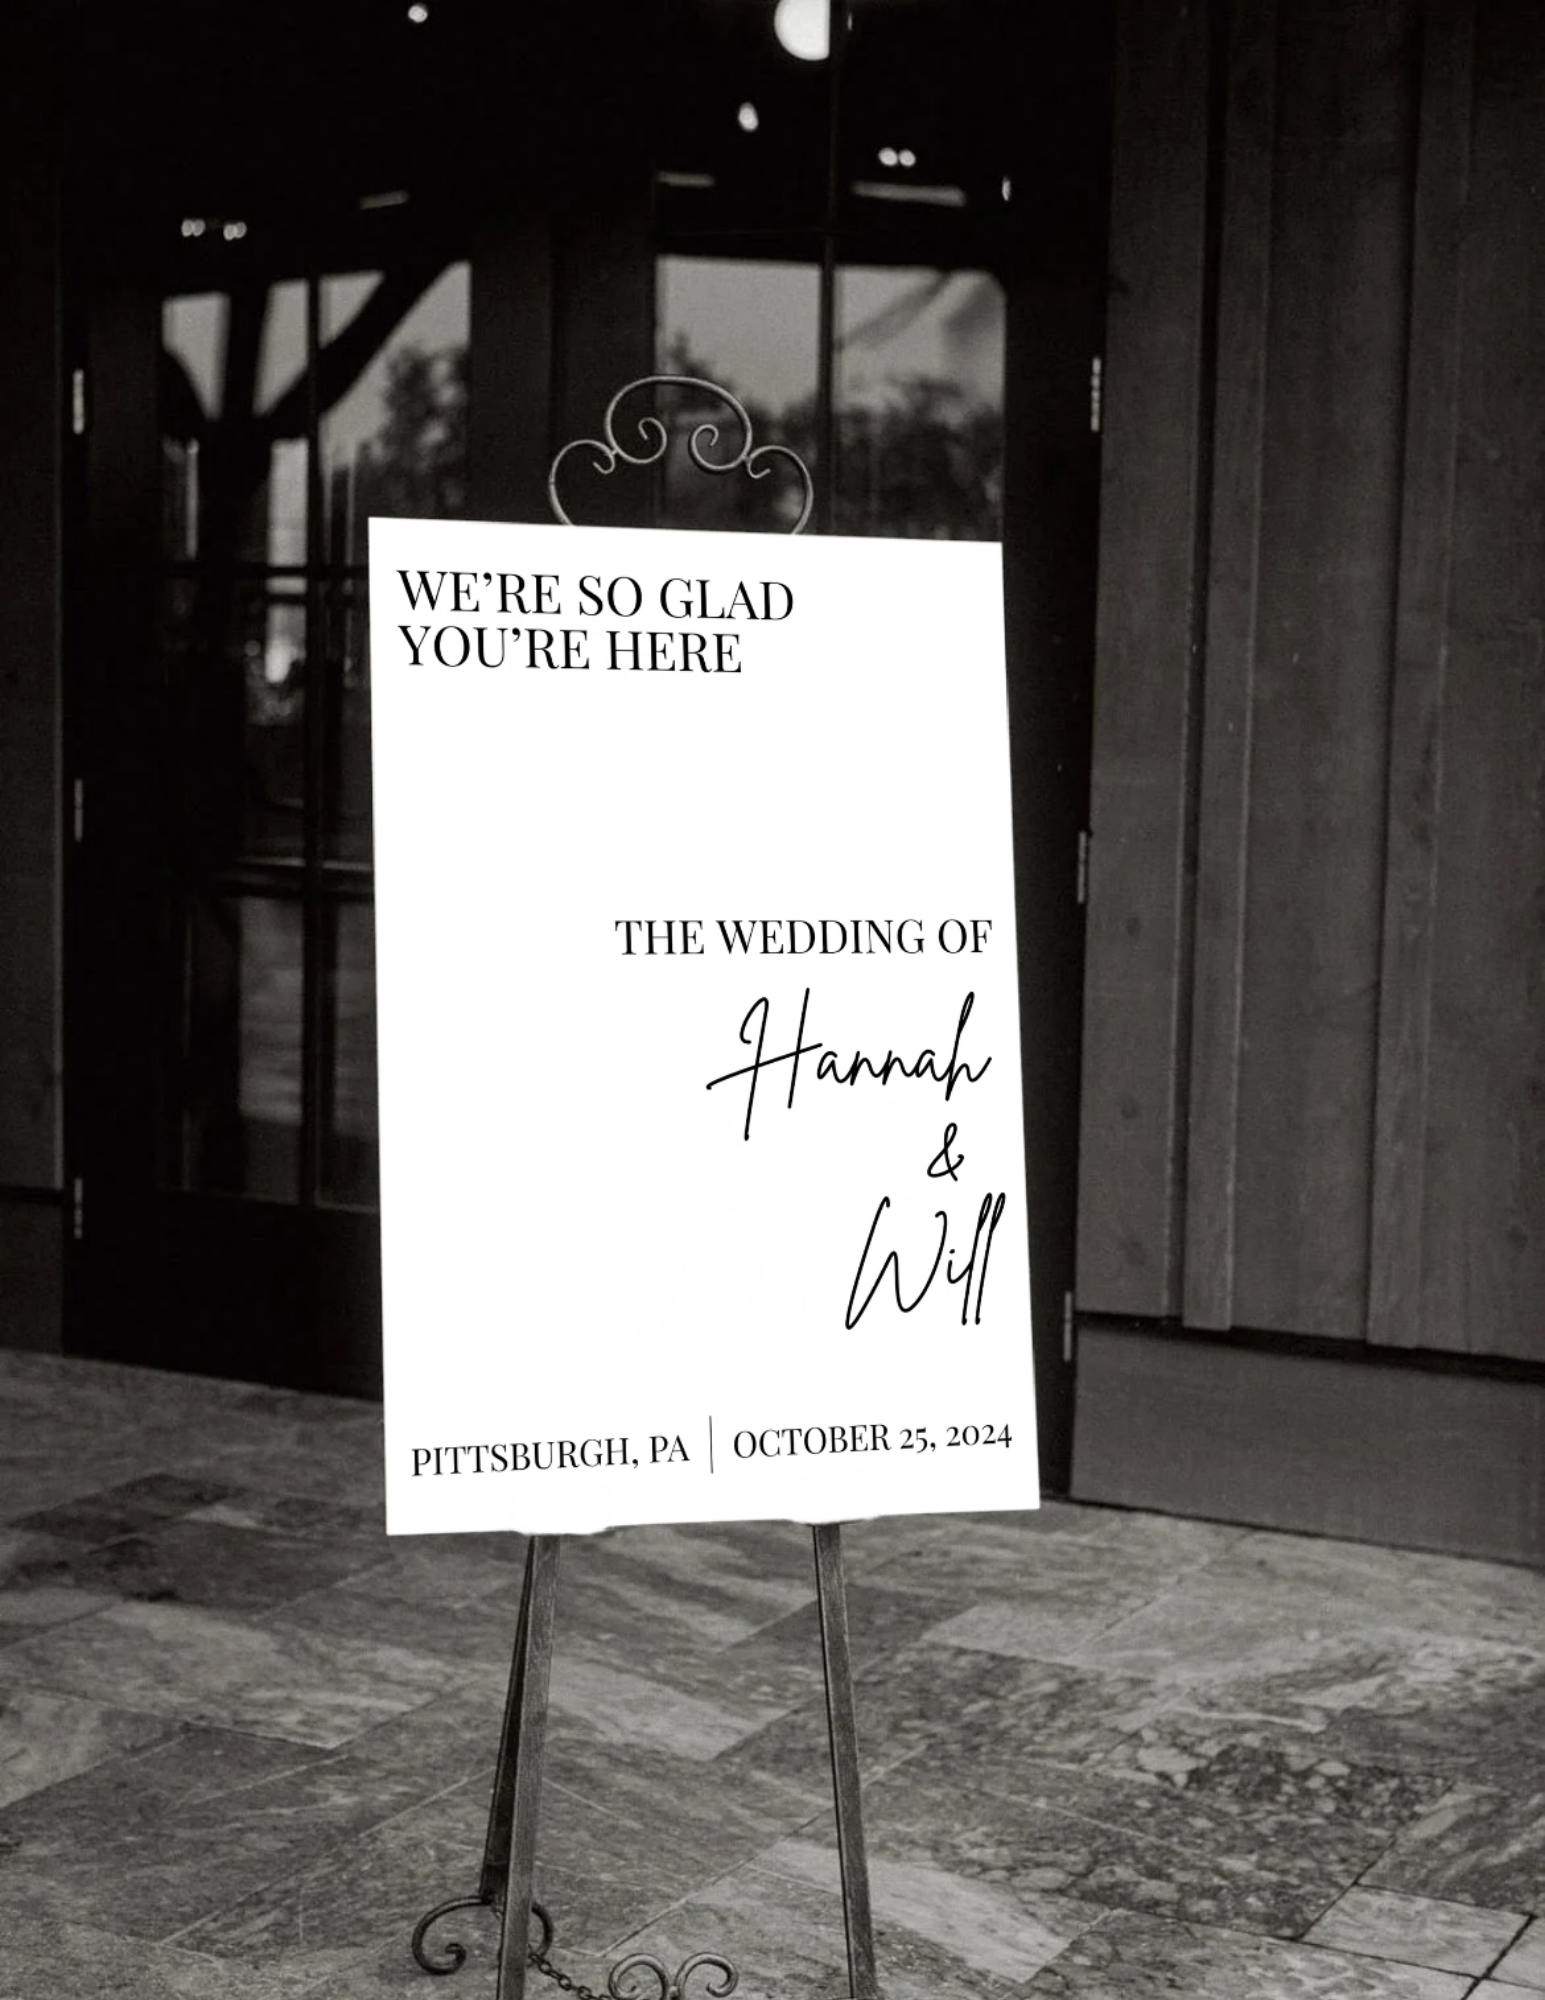 WE’RE SO GLAD
YOU’RE HERE
THE WEDDING OF
Hannah
&
Will
PITTSBURGH, PA | OCTOBER 25, 2024